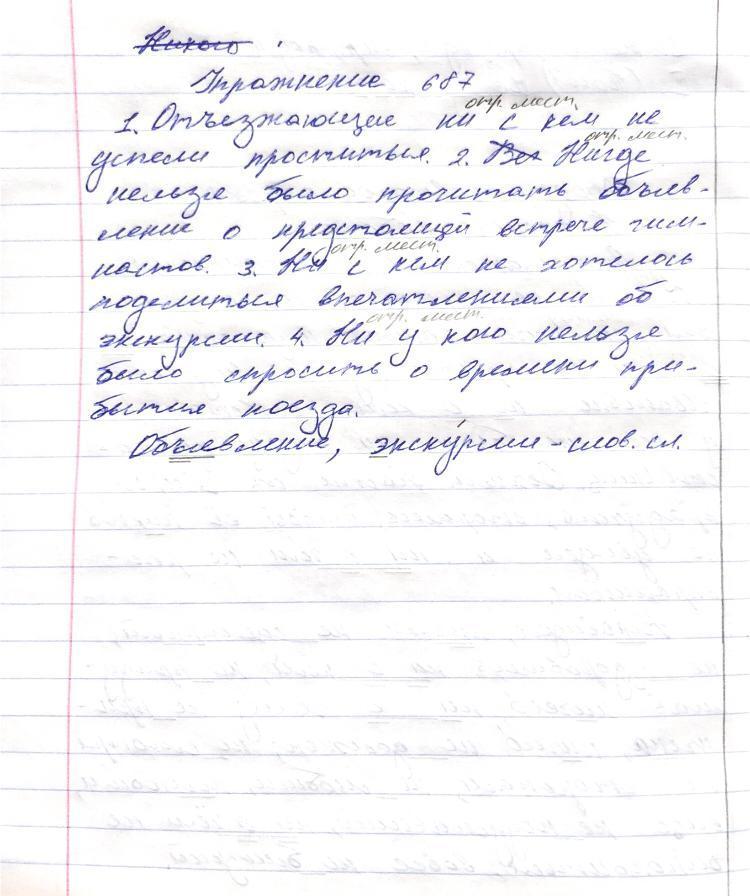 Никого
Упражнение 687
отр. мест.
1. Отъезжающие ни с кем не
отр. мест.
успели проститься. 2. Вез Нигде
нельзя было прочитать объяв-
ление о предстоящей встрече гим-
отр. мест.
настов. 3. Ни с кем не хотелось
поделиться впечатлениями об
отр. мест.
экскурсии. 4. Ни у кого нельзя
было спросить о времени при-
бытия поезда.
Объявление, экскурсии - слов. сл.